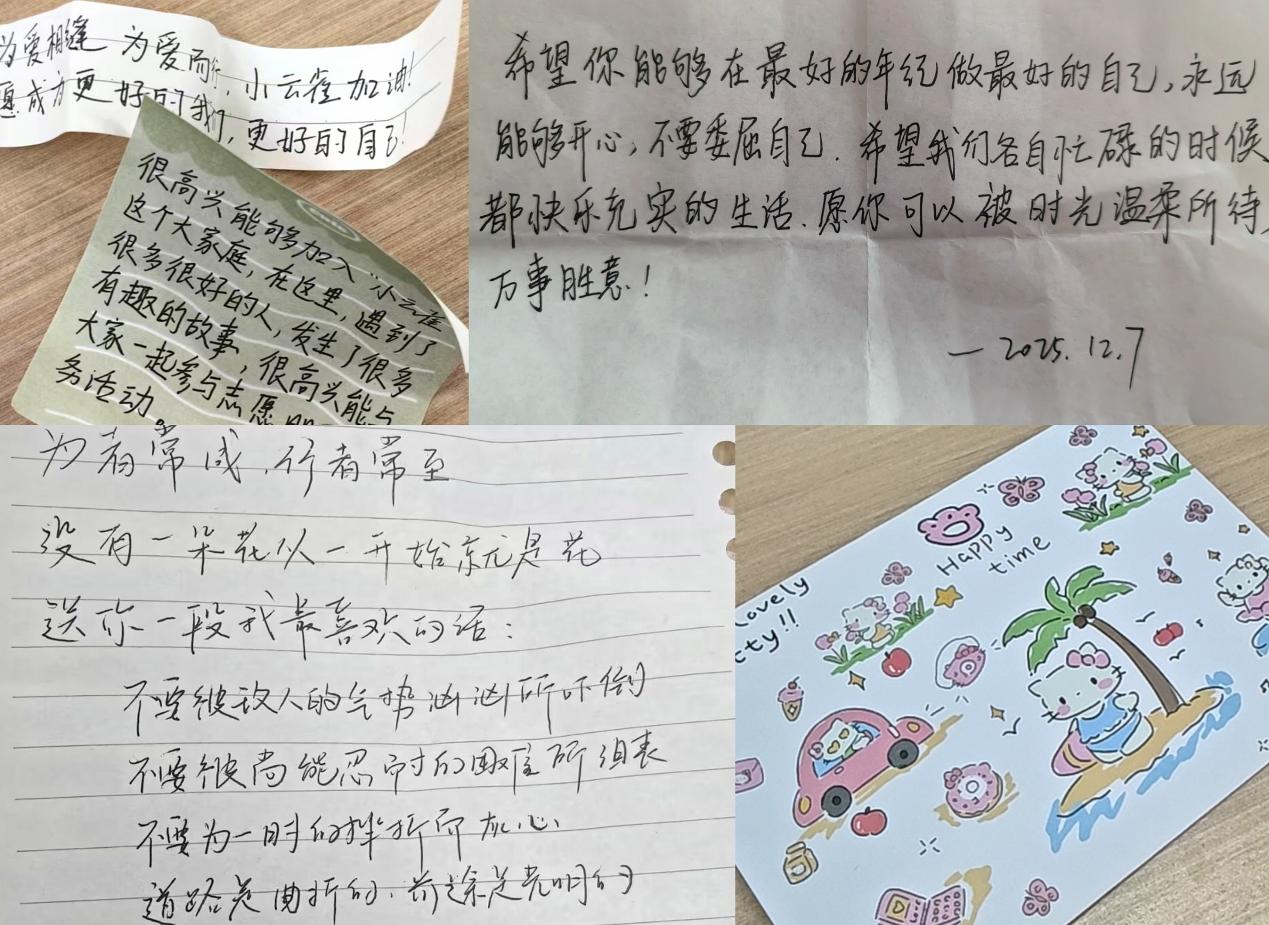 为爱相缝 为爱而行,小云雀加油!
愿成为更好的我们,更好的自己!
很高兴能够加入“小云雀
这个大家庭,在这里,遇到了
很多很好的人,发生了很多
有趣的故事,很高兴能与
大家一起参与志愿服
务活动。
希望你能够在最好的年纪做最好的自己,永远
能够开心,不要委屈自己.希望我们各自忙碌的时候
都快乐充实的生活.愿你可以被时光温柔所待,
万事胜意!
—2025.12.7
为者常成.行者常至
没有一朵花从一开始就是花
送你一段我最喜欢的话:
不要被敌人的气势汹汹所吓倒
不要被尚能忍耐的困难所沮丧
不要为一时的挫折而灰心
道路是曲折的.前途是光明的
Happy
time
Lovely
tty!!